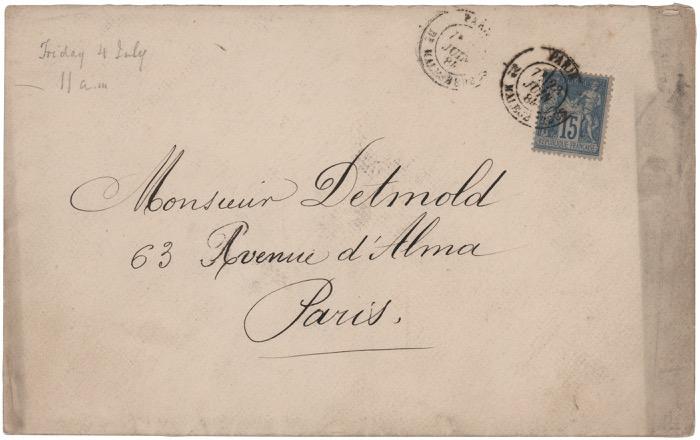 Friday 4 July
11 a.m
PARIS
7E
JUIN
84
Bd MALESHERBES
PARIS
7E
JUIN
84
15
REPUBLIQUE FRANCAISE
Monsieur Detmold
63 Avenue d'Alma
Paris.